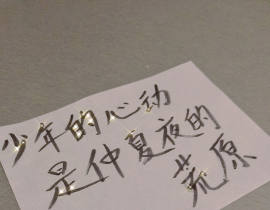 少年的心动
是仲夏夜的
荒原